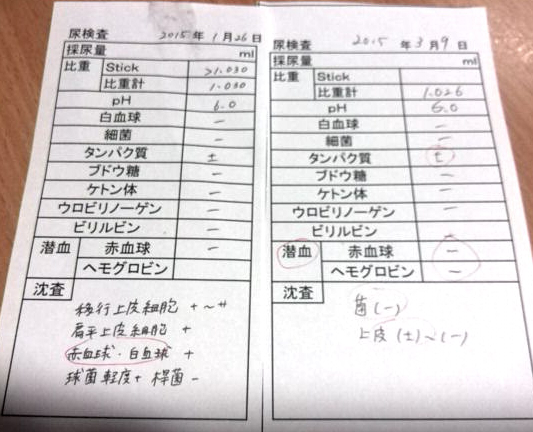 尿検査 2015年 1月 26日
採尿量 ml
比重 Stick >1.030
比重計 1.030
pH 6.0
白血球 −
細菌 −
タンパク質 ±
ブドウ糖 −
ケトン体 −
ウロビリノーゲン −
ビリルビン −
潜血 赤血球 −
ヘモグロビン
沈査
移行上皮細胞 + ~ ++
扁平上皮細胞 +
赤血球・白血球 +
球菌 軽度+ 桿菌 −
尿検査 2015 年 3月 9日
採尿量 ml
比重 Stick
比重計 1.026
pH 6.0
白血球 −
細菌 −
タンパク質 ±
ブドウ糖 −
ケトン体 −
ウロビリノーゲン −
ビリルビン −
潜血 赤血球 −
ヘモグロビン −
沈査
菌 (−)
上皮 (±)~(−)